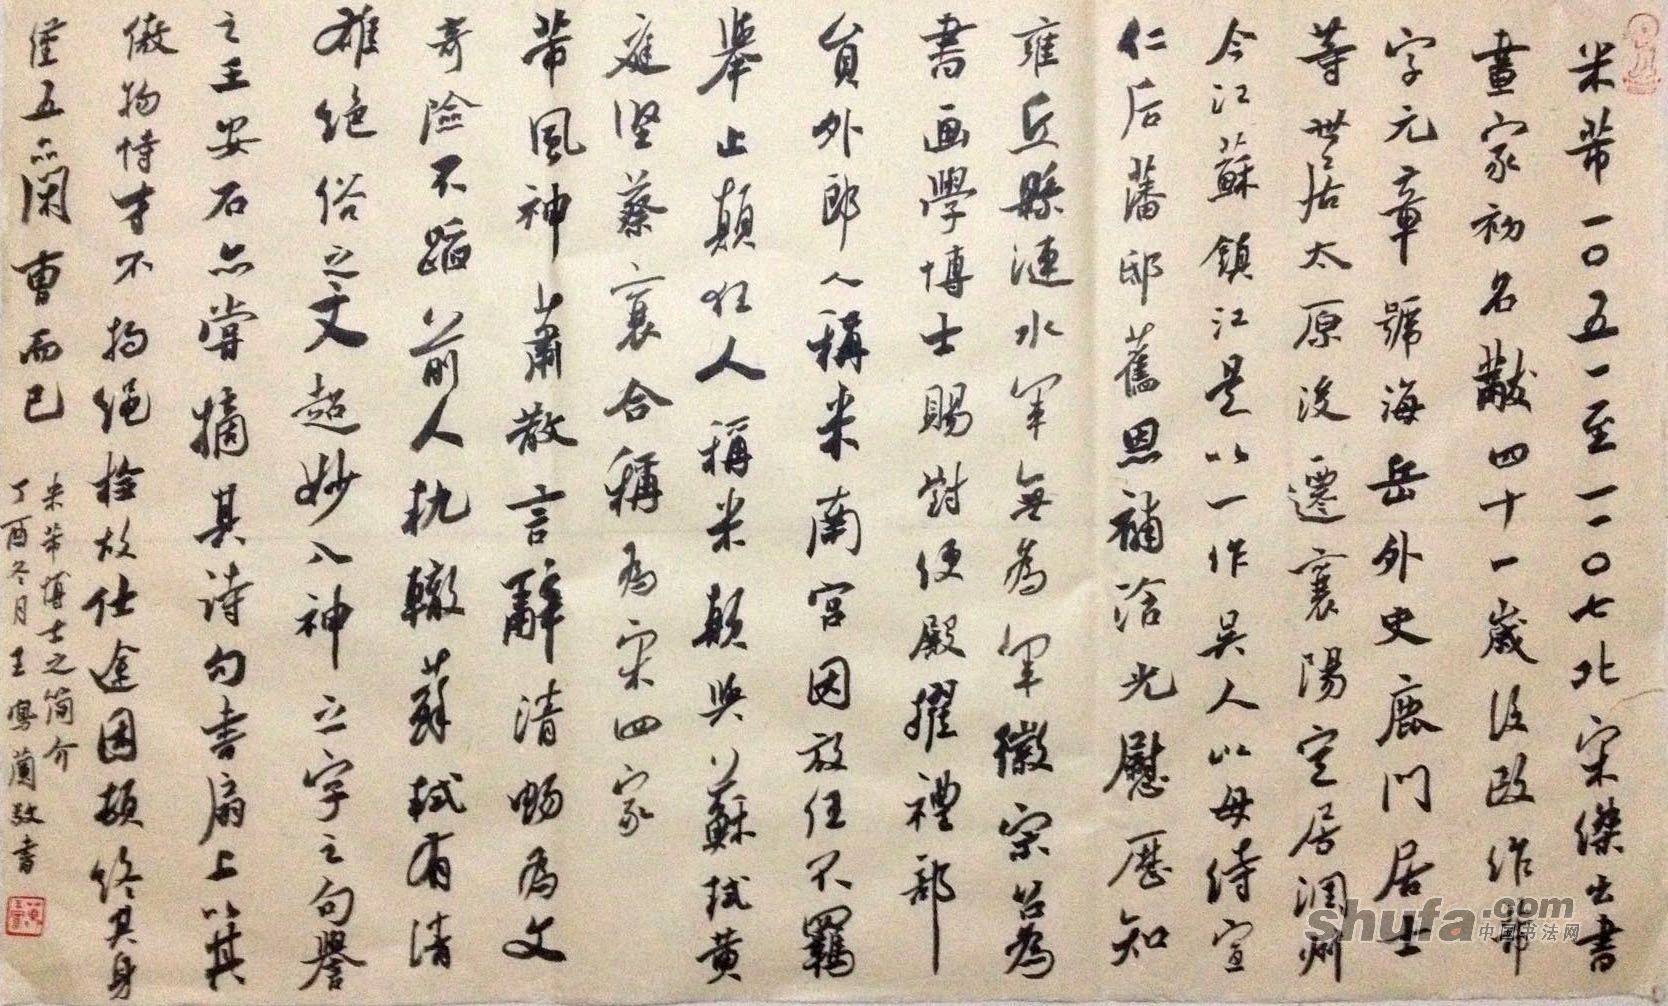 米芾一〇五一至一一〇七北宋傑出書
畫家初名黻四十一歲後改作芾
字元章號海岳外史鹿門居士
等世居太原後遷襄陽定居潤州
今江蘇鎮江是以一作吴人以母侍宣
仁后藩邸舊恩補浛光慰歷知
雍丘縣漣水軍無為軍徽宗召為
書画學博士賜對便殿擢禮部
員外郎人稱米南宫因放任不羈
舉止顛狂人稱米顛與蘇軾黄
庭坚蔡襄合稱為宋四家
芾風神蕭散言辭清暢為文
奇險不蹈前人軌轍蘇軾有清
雄絶俗之文超妙入神之字之句譽
之王安石亦嘗摘其诗句書扇上以其
傲物恃才不拘绳检故仕途困頓终其身
僅五品閑曹而已
米芾博士之简介
丁酉冬月王雪蘭敬書
shufa.com
中国书法网